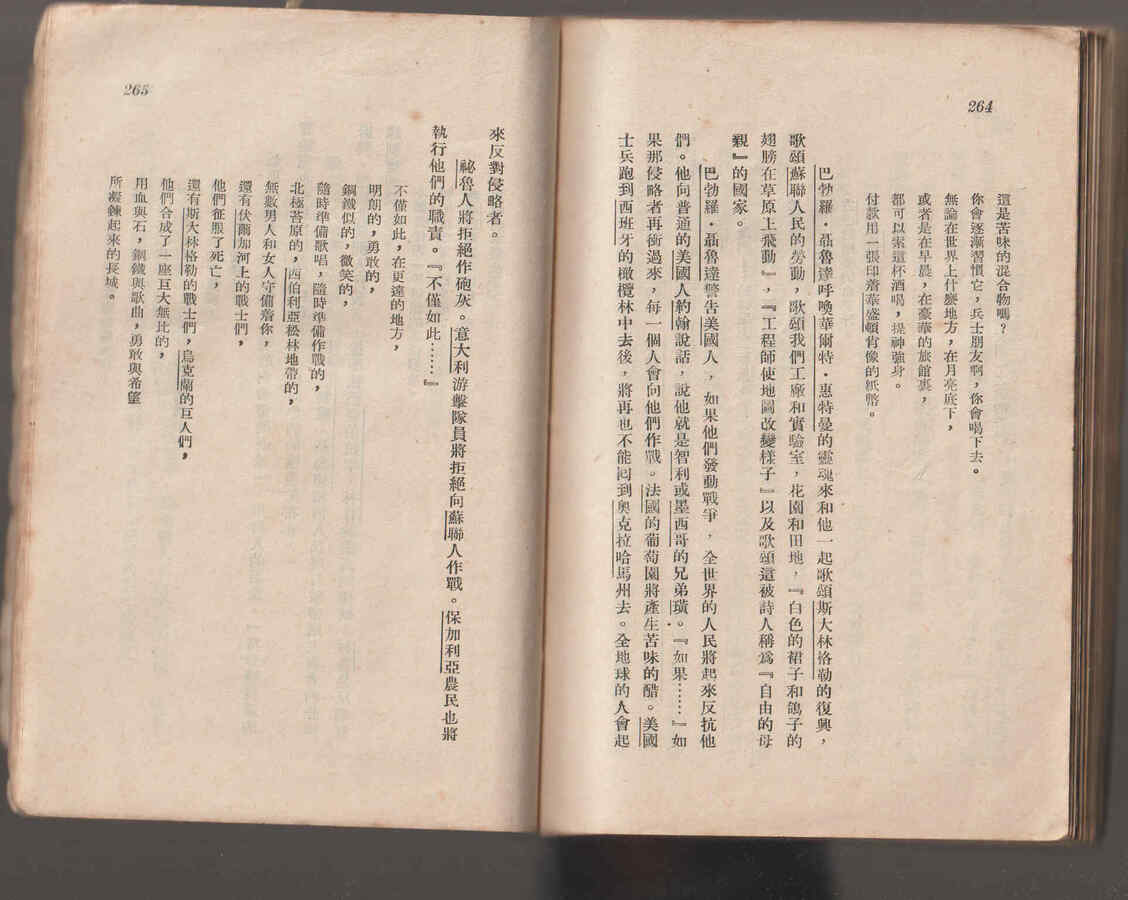 264
這是苦味的混合物嗎？
你會逐漸習慣它，兵士朋友啊，你會喝下去。
無論在世界上什麼地方，在月亮底下，
或者是在早晨，在豪華的旅館裏，
都可以索這杯酒喝，提神強身。
付款用一張印着華盛頓肖像的紙幣。
巴勃羅·聶魯達呼喚華爾特·惠特曼的靈魂來和他一起歌頌斯大林格勒的復興，
歌頌蘇聯人民的勞動，歌頌我們工廠和實驗室，花園和田地，『白色的裙子和鴿子的
翅膀在草原上飛動』，『工程師使地圖改變樣子』以及歌頌這被詩人稱爲『自由的母
親』的國家。
巴勃羅·聶魯達警告美國人，如果他們發動戰爭，全世界的人民將起來反抗他
們。他向普通的美國人約翰說話，說他就是智利或墨西哥的兄弟璜。『如果……』如
果那侵略者再衝過來，每一個人會向他們作戰。法國的葡萄園將產生苦味的醋。美國
士兵跑到西班牙的橄欖林中去後，將再也不能回到奧克拉哈馬州去。全地球的人會起
265
來反對侵略者。
祕魯人將拒絕作砲灰。意大利游擊隊員將拒絕向蘇聯人作戰。保加利亞農民也將
執行他們的職責。『不僅如此……』
不僅如此，在更遠的地方，
明朗的，勇敢的，
鋼鐵似的，微笑的，
隨時準備歌唱，隨時準備作戰的，
北極苔原的，西伯利亞松林地帶的，
無數男人和女人守備着你，
還有伏爾加河上的戰士們，
他們征服了死亡，
還有斯大林格勒的戰士們，烏克蘭的巨人們，
他們合成了一座巨大無比的，
用血與石，鋼鐵與歌曲，勇敢與希望
所凝鍊起來的長城。